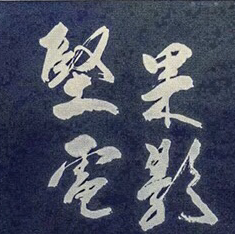 堅果
電影